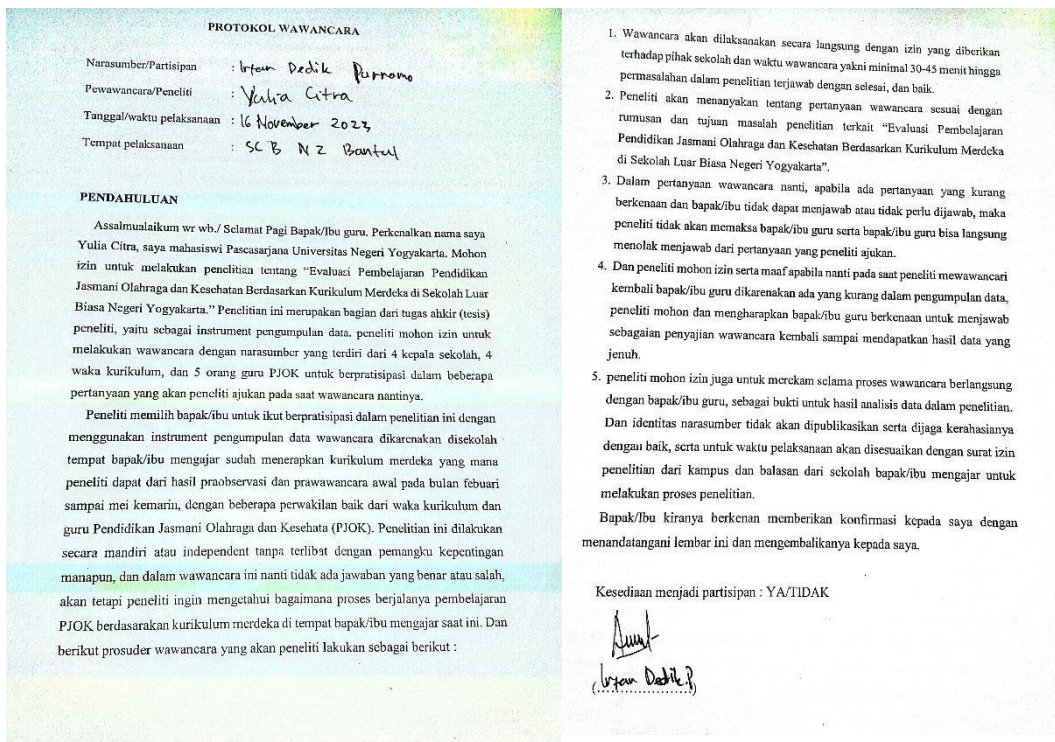 PROTOKOL WAWANCARA
Narasumber/Partisipan : Irfan Dedik Purnomo
Pewawancara/Peneliti : Yulia Citra
Tanggal/waktu pelaksanaan : 16 November 2023
Tempat pelaksanaan : SLB N 2 Bantul
PENDAHULUAN
Assalmualaikum wr wb./ Selamat Pagi Bapak/Ibu guru. Perkenalkan nama saya
Yulia Citra, saya mahasiswi Pascasarjana Universitas Negeri Yogyakarta. Mohon
izin untuk melakukan penelitian tentang “Evaluasi Pembelajaran Pendidikan
Jasmani Olahraga dan Kesehatan Berdasarkan Kurikulum Merdeka di Sekolah Luar
Biasa Negeri Yogyakarta.” Penelitian ini merupakan bagian dari tugas ahkir (tesis)
peneliti, yaitu sebagai instrument pengumpulan data. peneliti mohon izin untuk
melakukan wawancara dengan narasumber yang terdiri dari 4 kepala sekolah, 4
waka kurikulum, dan 5 orang guru PJOK untuk berpratisipasi dalam beberapa
pertanyaan yang akan peneliti ajukan pada saat wawancara nantinya.
Peneliti memilih bapak/ibu untuk ikut berpratisipasi dalam penelitian ini dengan
menggunakan instrument pengumpulan data wawancara dikarenakan disekolah
tempat bapak/ibu mengajar sudah menerapkan kurikulum merdeka yang mana
peneliti dapat dari hasil praobservasi dan prawawancara awal pada bulan febuari
sampai mei kemarin, dengan beberapa perwakilan baik dari waka kurikulum dan
guru Pendidikan Jasmani Olahraga dan Kesehata (PJOK). Penelitian ini dilakukan
secara mandiri atau independent tanpa terlibat dengan pemangku kepentingan
manapun, dan dalam wawancara ini nanti tidak ada jawaban yang benar atau salah,
akan tetapi peneliti ingin mengetahui bagaimana proses berjalanya pembelajaran
PJOK berdasarakan kurikulum merdeka di tempat bapak/ibu mengajar saat ini. Dan
berikut prosuder wawancara yang akan peneliti lakukan sebagai berikut :
1. Wawancara akan dilaksanakan secara langsung dengan izin yang diberikan
terhadap pihak sekolah dan waktu wawancara yakni minimal 30-45 menit hingga
permasalahan dalam penelitian terjawab dengan selesai, dan baik.
2. Peneliti akan menanyakan tentang pertanyaan wawancara sesuai dengan
rumusan dan tujuan masalah penelitian terkait “Evaluasi Pembelajaran
Pendidikan Jasmani Olahraga dan Kesehatan Berdasarkan Kurikulum Merdeka
di Sekolah Luar Biasa Negeri Yogyakarta”.
3. Dalam pertanyaan wawancara nanti, apabila ada pertanyaan yang kurang
berkenaan dan bapak/ibu tidak dapat menjawab atau tidak perlu dijawab, maka
peneliti tidak akan memaksa bapak/ibu guru serta bapak/ibu guru bisa langsung
menolak menjawab dari pertanyaan yang peneliti ajukan.
4. Dan peneliti mohon izin serta maaf apabila nanti pada saat peneliti mewawancari
kembali bapak/ibu guru dikarenakan ada yang kurang dalam pengumpulan data,
peneliti mohon dan mengharapkan bapak/ibu guru berkenaan untuk menjawab
sebagaian penyajian wawancara kembali sampai mendapatkan hasil data yang
jenuh.
5. peneliti mohon izin juga untuk merekam selama proses wawancara berlangsung
dengan bapak/ibu guru, sebagai bukti untuk hasil analisis data dalam penelitian.
Dan identitas narasumber tidak akan dipublikasikan serta dijaga kerahasianya
dengan baik, serta untuk waktu pelaksanaan akan disesuaikan dengan surat izin
penelitian dari kampus dan balasan dari sekolah bapak/ibu mengajar untuk
melakukan proses penelitian.
Bapak/Ibu kiranya berkenan memberikan konfirmasi kepada saya dengan
menandatangani lembar ini dan mengembalikanya kepada saya.
Kesediaan menjadi partisipan : YA/TIDAK
(Irfan Dedik.P)